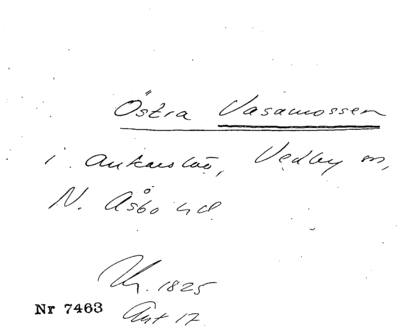 Östra Vasamossen
i Ankarslöv, Vedby sn,
N. Åsbo hd
1825
Nr 7463
Akt 17